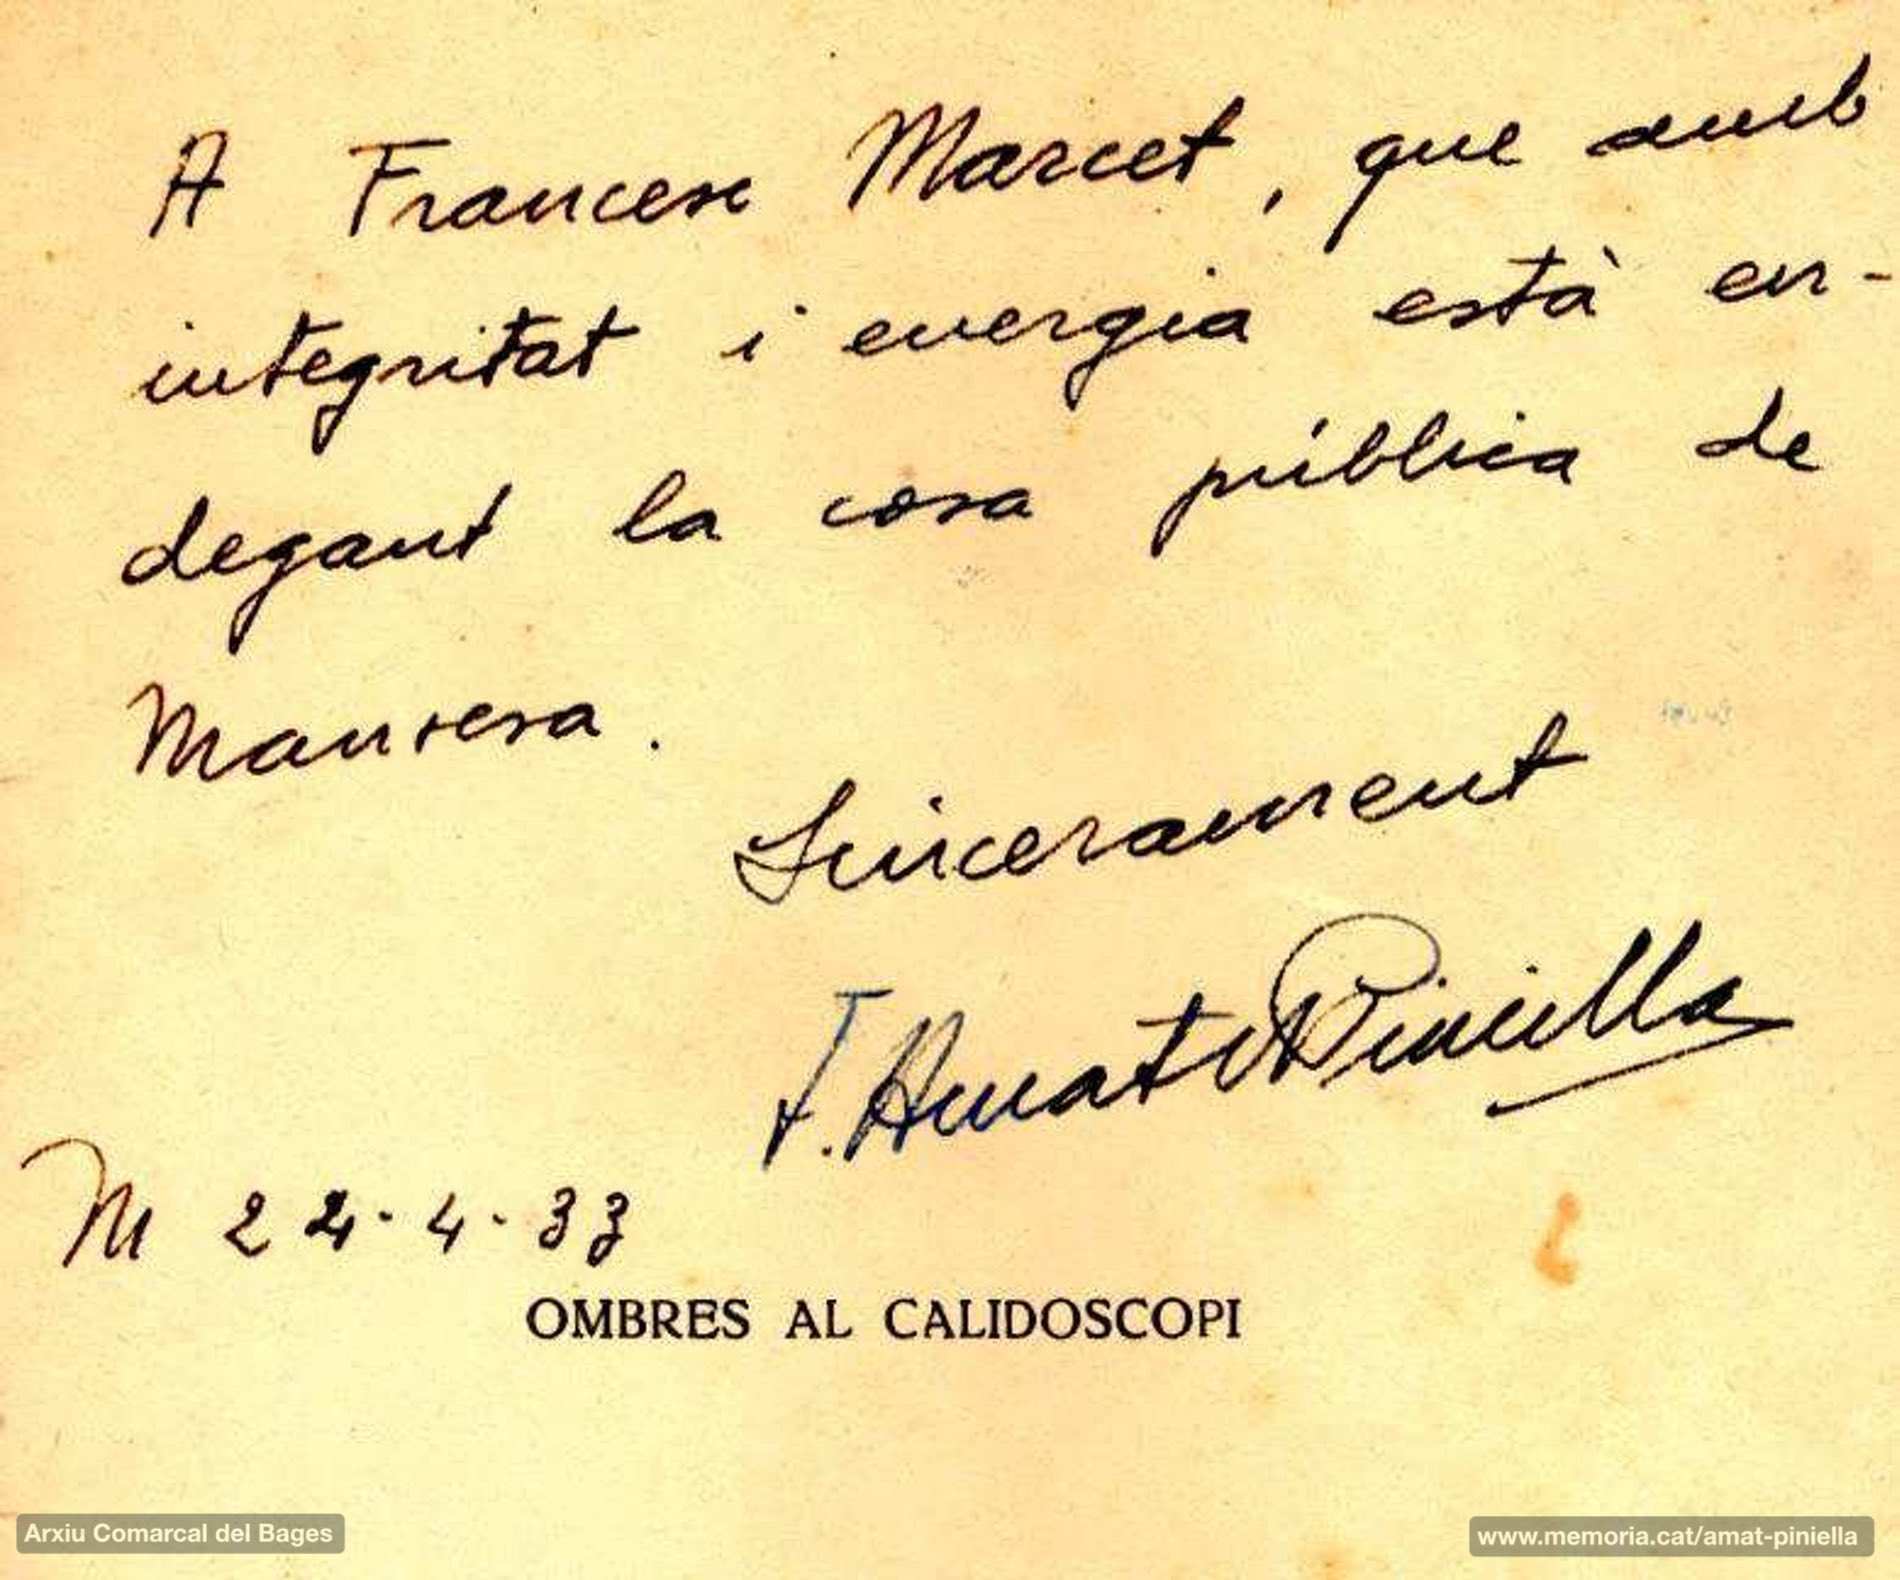 A Francesc Marcet, que amb
integritat i energia està en-
degant la cosa pública de
Manresa.
Sincerament
J. Amat i Piniella
M 24·4·33
OMBRES AL CALIDOSCOPI
Arxiu Comarcal del Bages
www.memoria.cat/amat-piniella